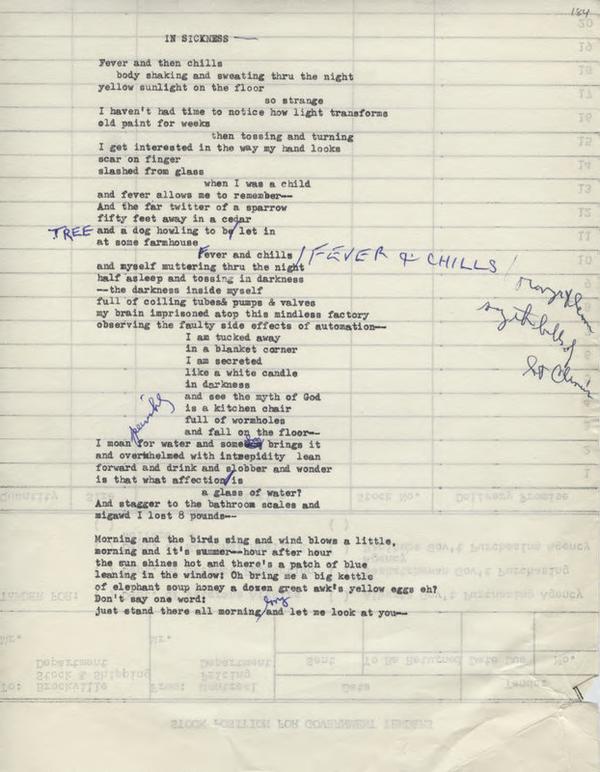 184
IN SICKNESS —
Fever and then chills
body shaking and sweating thru the night
yellow sunlight on the floor
so strange
I haven't had time to notice how light transforms
old paint for weeks
then tossing and turning
I get interested in the way my hand looks
scar on finger
slashed from glass
when I was a child
and fever allows me to remember--
And the far twitter of a sparrow
fifty feet away in a cedar
TREE and a dog howling to be/ let in
at some farmhouse
Fever and chills / FEVER & CHILLS /
and myself muttering thru the night
half asleep and tossing in darkness
--the darkness inside myself
full of coiling tubes & pumps & valves
my brain imprisoned atop this mindless factory
observing the faulty side effects of automation--
I am tucked away
in a blanket corner
I am secreted
like a white candle
in darkness
and see the myth of God
is a kitchen chair
full of wormholes
and fall on the floor--
I moan for water and some brings it
and overwhelmed with intrepidity lean
forward and drink and slobber and wonder
is that what affection/is
a glass of water?
And stagger to the bathroom scales and
migawd I lost 8 pounds--
Morning and the birds sing and wind blows a little,
morning and it's summer--hour after hour
the sun shines hot and there's a patch of blue
leaning in the window: Oh bring me a big kettle
of elephant soup honey a dozen great awk's yellow eggs eh?
Don't say one word:
long
just stand there all morning/and let me look at you--
oranges & lemons
say the bells of
St Clemens
20
19
18
17
16
15
14
13
12
11
10
2
1
Quantity
Size
Stock No.
Delivery Promise
( )
( )
Gov't Purchasing Agency
Agency
Saskatchewan Gov't Purchasing
TENDER FOR:
Alberta Gov't Purchasing Agency
Mr.
Mr.
Department
Department
Stock & Shipping
Pricing
To: Brockville
From: Montreal
Sent
To Be Returned
Date Due
No.
Date
Tender
STOCK POSITION FOR GOVERNMENT TENDERS